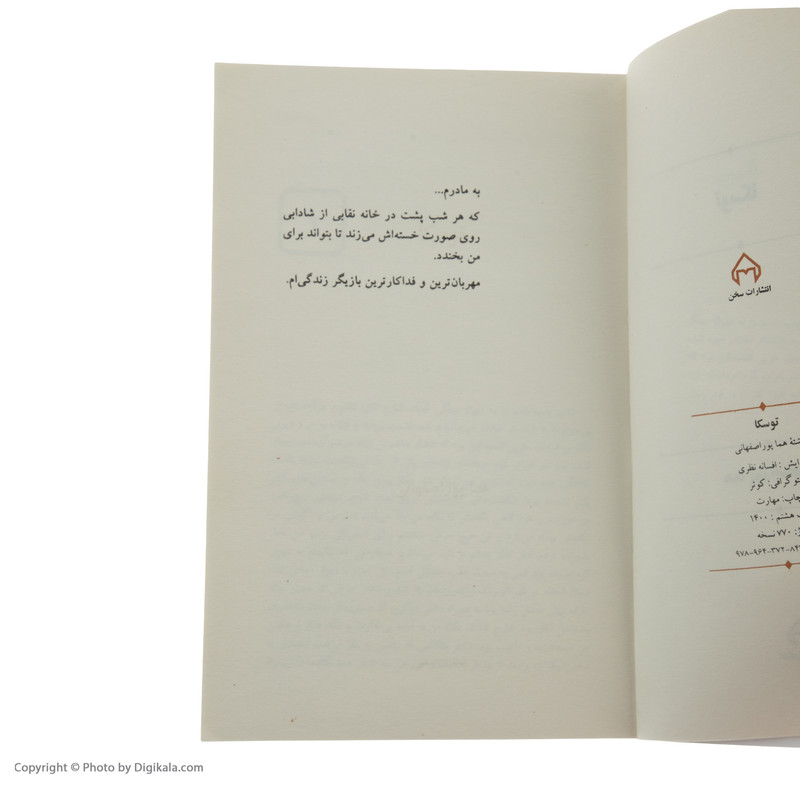 انتشارات سخن
توسکا
هما پوراصفهانی
افسانه نظری
کوثر
چاپ: مهارت
هشتم: ۱۴۰۰
۷۷۰ نسخه
۹۷۸-۹۶۴-۳۷۲-۸۴
به مادرم...
که هر شب پشت در خانه نقابی از شادابی
روی صورت خسته‌اش می‌زند تا بتواند برای
من بخندد.
مهربان‌ترین و فداکارترین بازیگر زندگی‌ام.
Copyright © Photo by Digikala.com